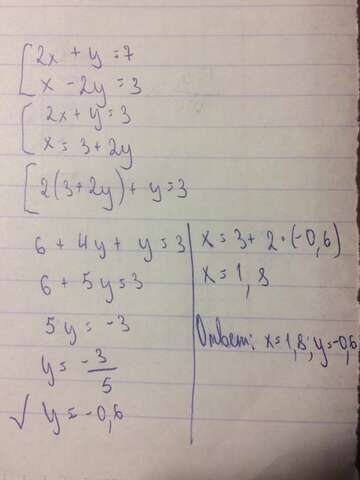 2x + y = 7
x - 2y = 3
2x + y = 3
x = 3 + 2y
2(3 + 2y) + y = 3
6 + 4y + y = 3
6 + 5y = 3
5y = -3
y = -3/5
√ y = -0,6
x = 3 + 2·(-0,6)
x = 1,8
Ответ: x = 1,8; y = -0,6